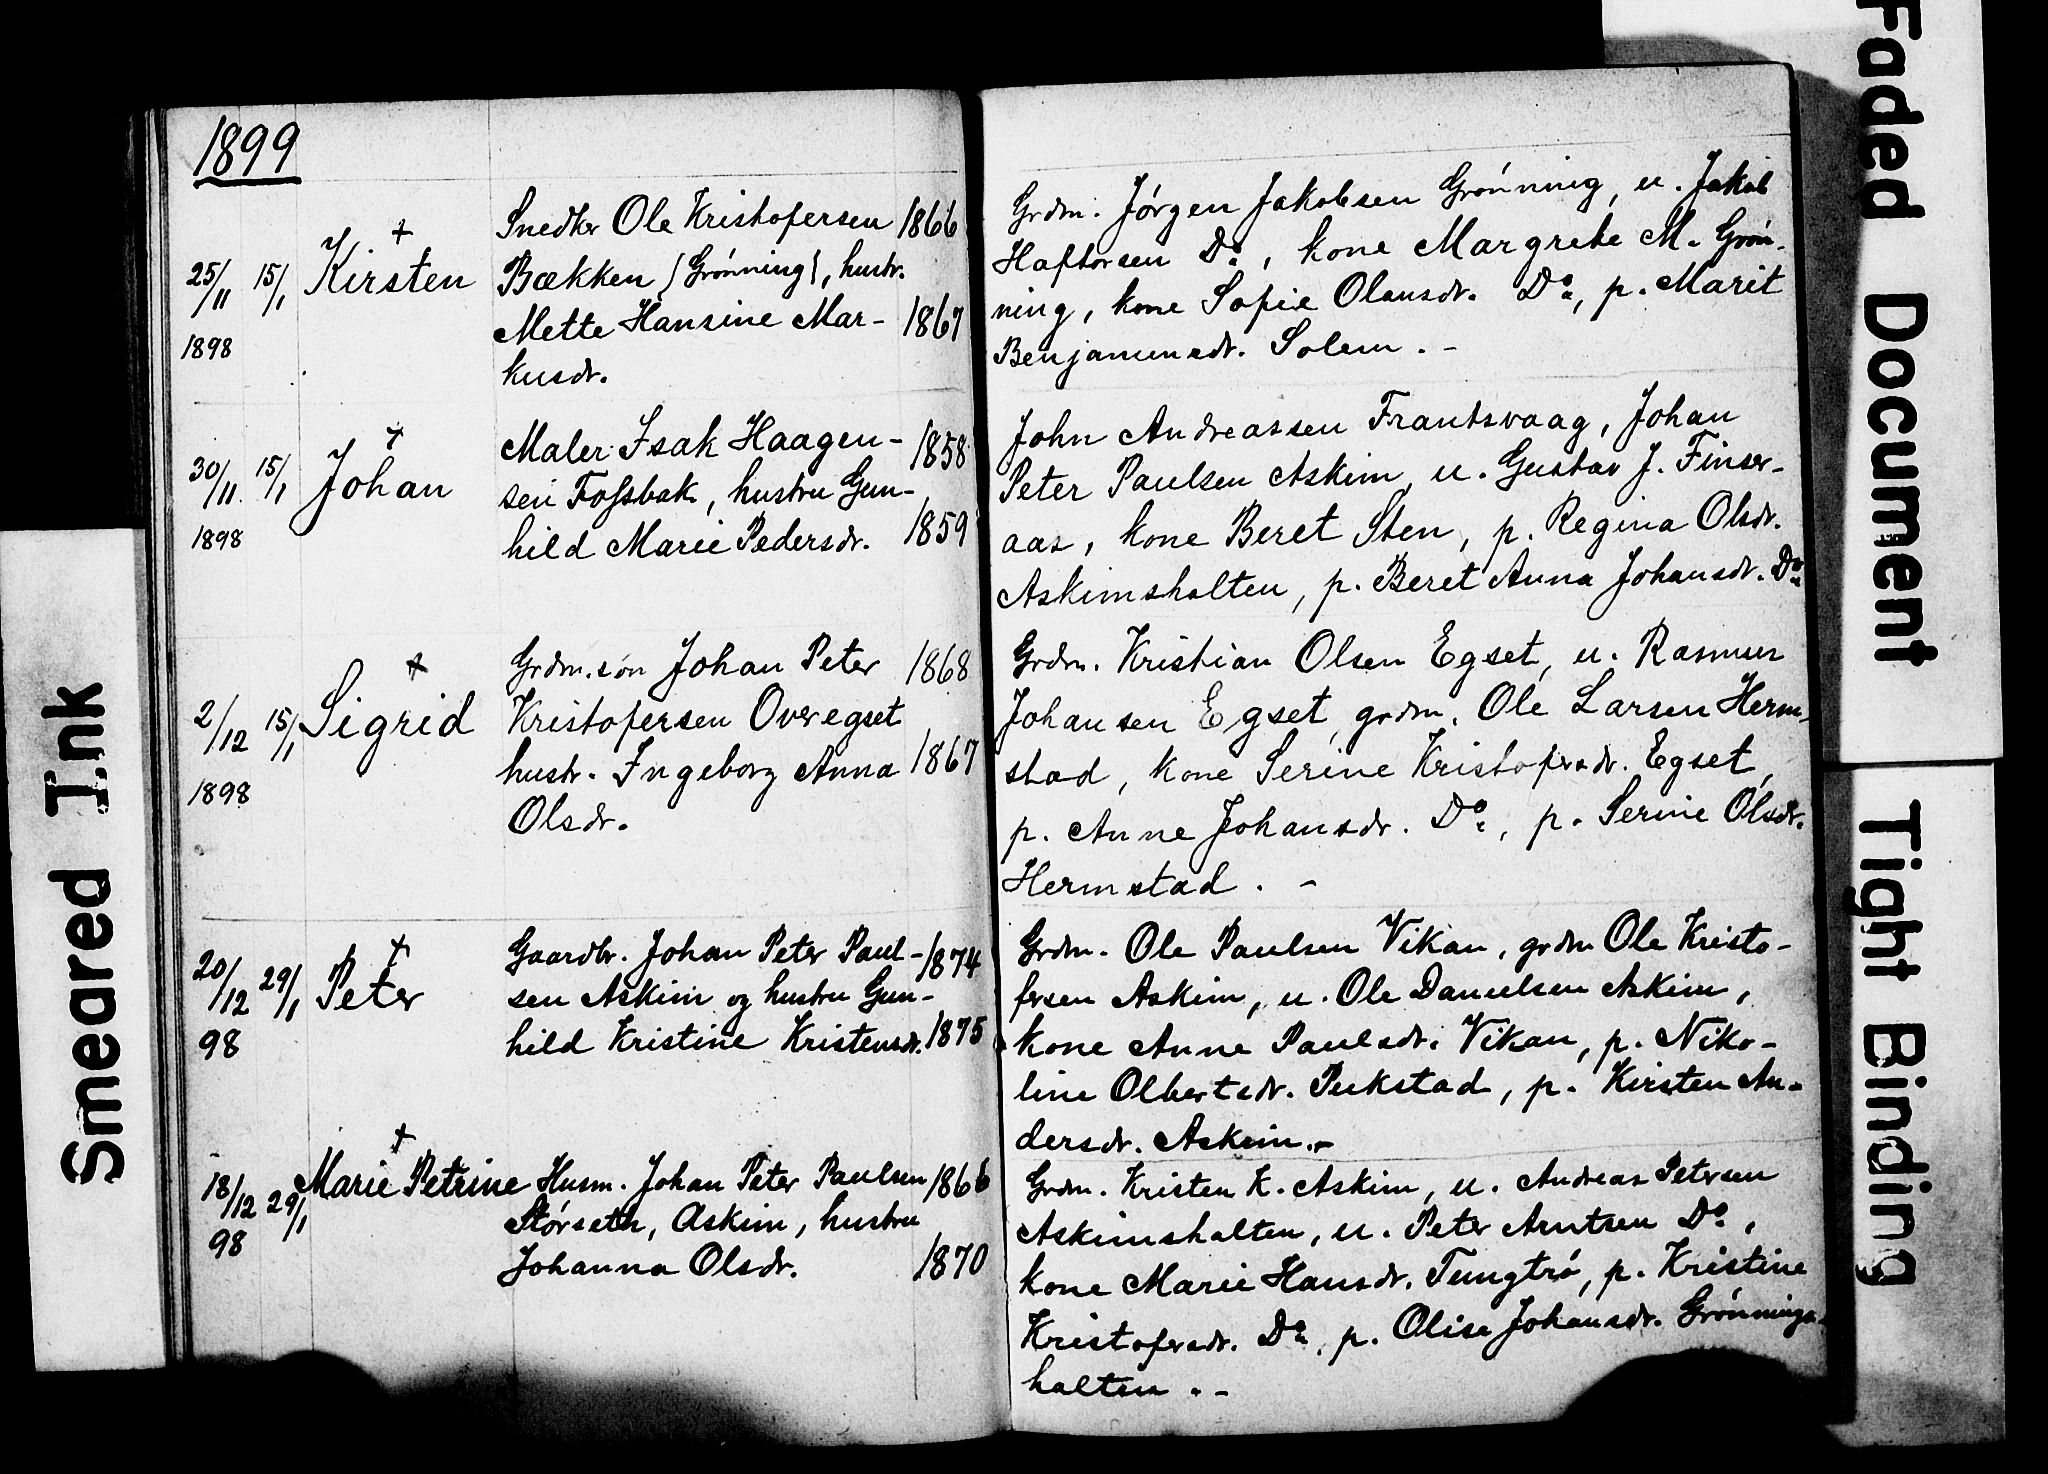 1899
25/11 15/1 Kirsten + Snedker Ole Kristofersen 1866
1898 Bækken (Grønning), hustr.
Mette Hansine Mar- 1867
kusdr.
Grdm. Jørgen Jakobsen Grønning, u. Jakob
Haftorsen Do, kone Margrete M. Grøn-
ning, kone Sofie Olausdr. Do, p. Marit
Benjaminsdr. Solem. -
30/11 15/1 Johan + Maler Isak Haagen- 1858
1898 sen Fossbak, hustru Gun-
hild Marie Pedersdr. 1859
John Andreassen Frantsvaag, Johan
Peter Paulsen Askim, u. Gustav J. Finser-
aas, kone Beret Sten, p. Regina Olsdr.
Askimshalten, p. Beret Anna Johansdr. Do
2/12 15/1 Sigrid + Grdm.søn Johan Peter 1868
1898 Kristofersen Overegset
hustr. Ingeborg Anna 1867
Olsdr.
Grdm. Kristian Olsen Egset, u. Rasmus
Johansen Egset, grdm. Ole Larsen Herm-
stad, kone Serine Kristofersdr. Egset,
p. Anne Johansdr. Do, p. Serine Olsdr.
Hermstad. -
20/12 29/1 Peter + Gaardbr. Johan Peter Paul- 1874
98 sen Askim og hustru Gun-
hild Kristine Kristensdr. 1875
Grdm. Ole Paulsen Vikan, grdm Ole Kristo-
fersen Askim, u. Ole Danielsen Askim,
kone Anne Paulsdr. Vikan, p. Niko-
line Olbertsdr. Pukstad, p. Kirsten An-
dersdr. Askim.-
18/12 29/1 Marie Petrine + Husm. Johan Peter Paulsen 1866
98 Størseth, Askim, hustru
Johanna Olsdr. 1870
Grdm. Kristen K. Askim, u. Andreas Petersen
Askimshalten, u. Peter Arntsen Do,
kone Marie Hansdr. Tungtrø, p. Kristine
Kristofersdr. Do, p. Olise Johansdr. Grønnings-
halten. -
Smeared Ink
Faded Document
Tight Binding